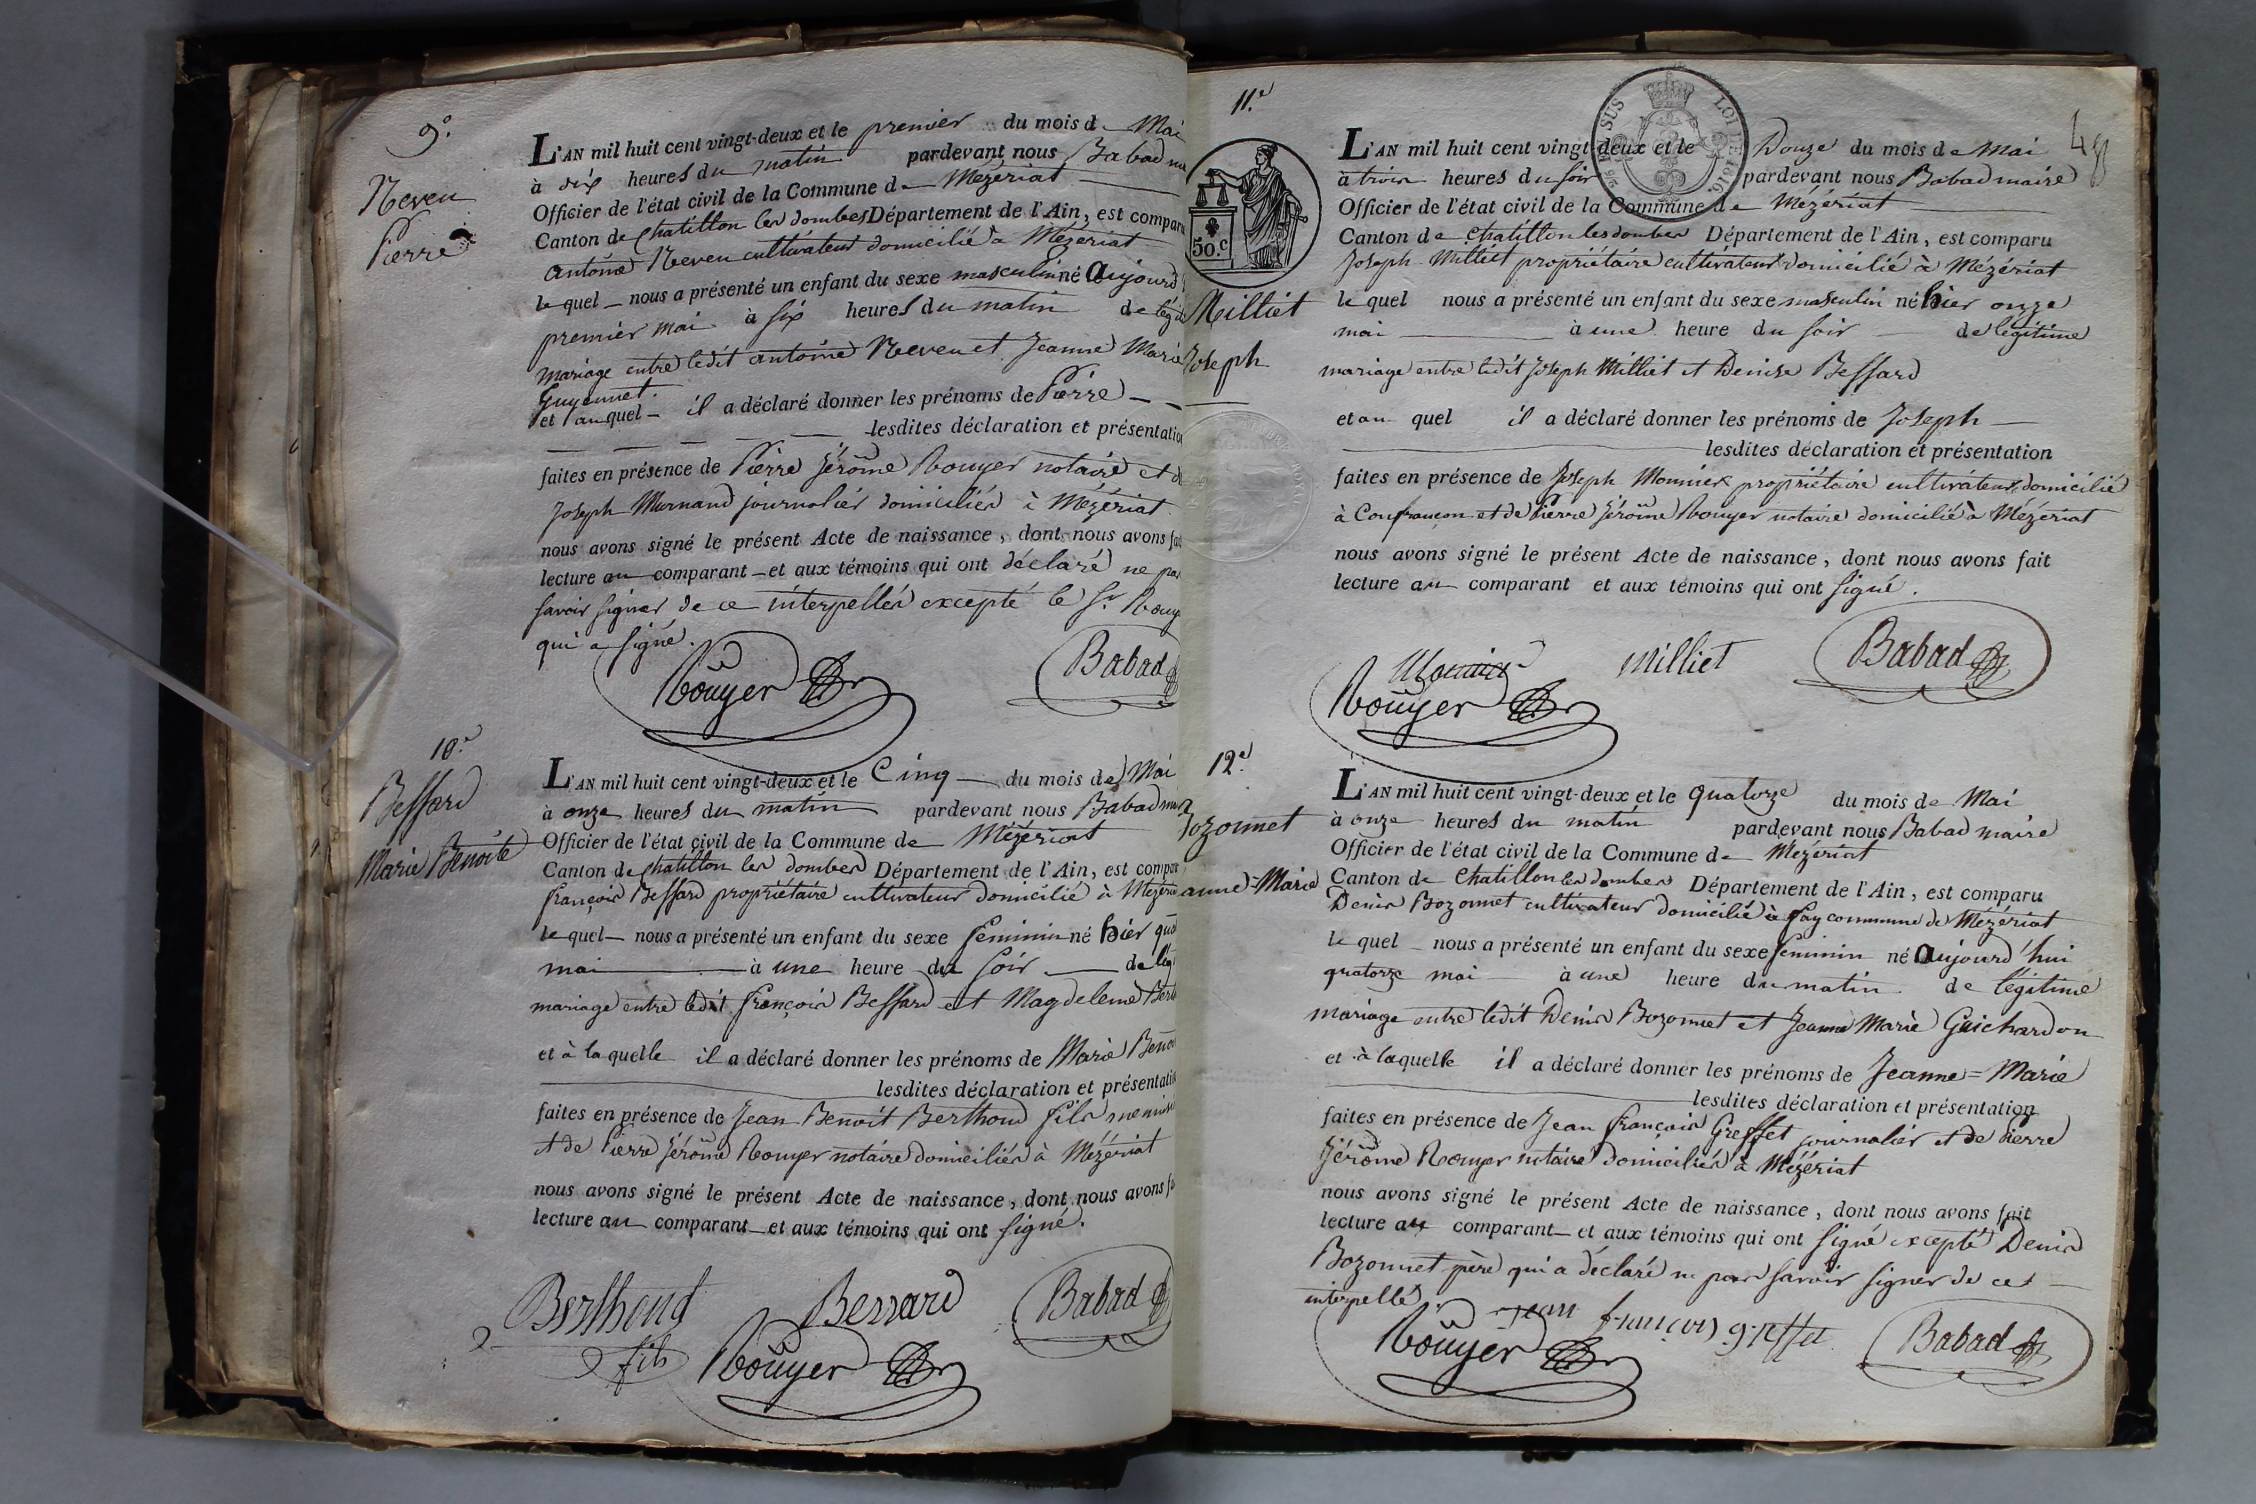 9.e
Neveu
Pierre
L'AN mil huit cent vingt-deux et le premier du mois d Mai
à six heures du matin pardevant nous Babad
Officier de l'état civil de la Commune de Mézériat
Canton de Chatillon les dombes Département de l'Ain, est comparu
antoine Neveu cultivateur domicilié à Mézériat
le quel nous a présenté un enfant du sexe masculin né aujourd
premier mai à six heures du matin de
mariage entre ledit antoine Neveu et Jeanne Marie
Guyennet.
et auquel il a déclaré donner les prénoms de Pierre
lesdites déclaration et présentation
faites en présence de Pierre Jérôme Rouyer notaire et
Joseph Murnand journalier domiciliés à Mézériat
nous avons signé le présent Acte de naissance, dont nous avons
lecture au comparant et aux témoins qui ont déclaré ne pas
savoir signer de ce interpellés excepté le Sr. Rouy
qui a signé.
Rouyer
Babad
10.e
Bessard
Marie Benoite
L'AN mil huit cent vingt-deux et le Cinq du mois de Mai
à onze heures du matin pardevant nous Babad
Officier de l'état civil de la Commune de Mézériat
Canton de Chatillon les dombes Département de l'Ain, est compar
françois Bessard propriétaire cultivateur domicilié à Mézéria
le quel nous a présenté un enfant du sexe feminin né hier
mai à une heure du soir de
mariage entre ledit françois Bessard et Magdeleine
et à laquelle il a déclaré donner les prénoms de Marie
lesdites déclaration et présentation
faites en présence de Jean Benoit Berthoud fils
et de Pierre Jérôme Rouyer notaire domiciliés à Mézériat
nous avons signé le présent Acte de naissance, dont nous avons
lecture au comparant et aux témoins qui ont signé.
Berthoud
fils
Bessard
Rouyer
Babad
48
11.e
50.c
Milliet
Joseph
L'AN mil huit cent vingt-deux et le Douze du mois de Mai
à trois heures du soir pardevant nous Babad maire
Officier de l'état civil de la Commune de Mézériat
Canton de Chatillon les dombes Département de l'Ain, est comparu
Joseph Milliet propriétaire cultivateur domicilié à Mézériat
le quel nous a présenté un enfant du sexe masculin né hier onze
mai à une heure du soir de légitime
mariage entre ledit Joseph Milliet et Denise Bessard
et au quel il a déclaré donner les prénoms de Joseph
lesdites déclaration et présentation
faites en présence de Joseph Monnier propriétaire cultivateur domicilié
à Confrançon et de Pierre Jérôme Rouyer notaire domicilié à Mézériat
nous avons signé le présent Acte de naissance, dont nous avons fait
lecture au comparant et aux témoins qui ont signé.
Monnier
Milliet
Babad
Rouyer
12.e
Bozonnet
anne-Marie
L'AN mil huit cent vingt-deux et le quatorze du mois de Mai
à onze heures du matin pardevant nous Babad maire
Officier de l'état civil de la Commune de Mézériat
Canton de Chatillon les dombes Département de l'Ain, est comparu
Denis Bozonnet cultivateur domicilié à fay commune de Mézériat
le quel nous a présenté un enfant du sexe feminin né aujourd'hui
quatorze mai à une heure du matin de légitime
mariage entre ledit Denis Bozonnet et Jeanne Marie Guichardon
et à laquelle il a déclaré donner les prénoms de Jeanne=Marie
lesdites déclaration et présentation
faites en présence de Jean françois Greffet journalier et de Pierre
Jérôme Rouyer notaire domiciliés à Mézériat
nous avons signé le présent Acte de naissance, dont nous avons fait
lecture au comparant et aux témoins qui ont signé excepté Denis
Bozonnet père qui a déclaré ne pas savoir signer de ce
interpellé.
Jean françois greffet
Rouyer
Babad